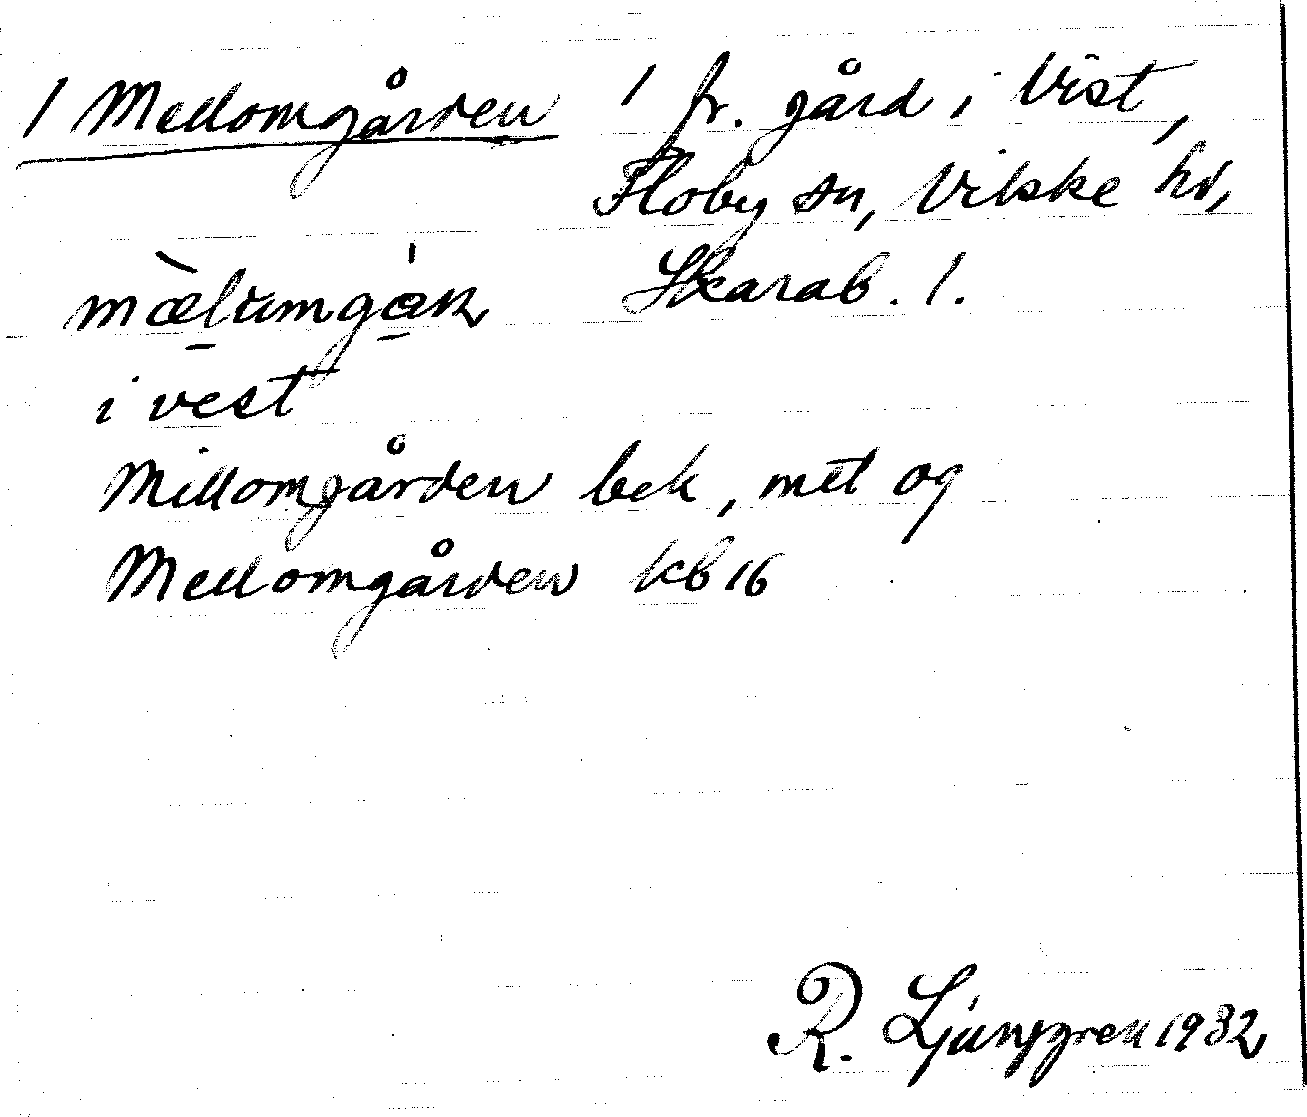 / Mellomgården / fr. gård i Vist,
Floby sn, Vilske hd,
Skarab. l.
mæ̀lumgáṇ
i vest
Millomgården bek, mtl og
Mellomgården kb 16
R. Ljunggren 1932